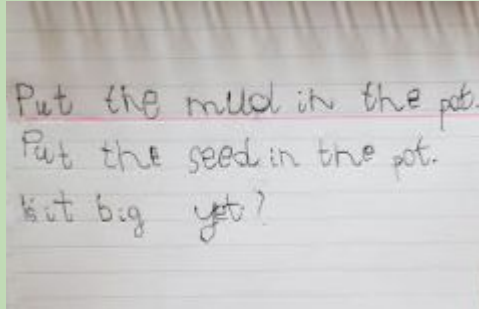 Put the mud in the pot.
Put the seed in the pot.
Is it big yet?